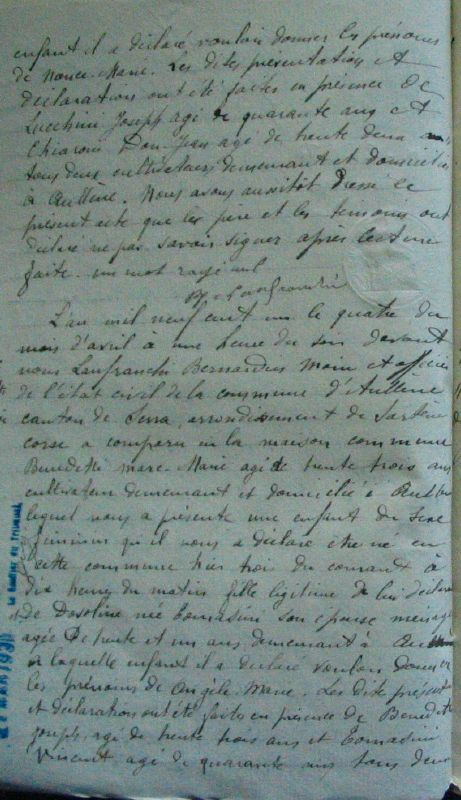 enfant il a déclaré vouloir donner les prénoms
de Marie. Les dites présentation et
déclaration ont été faites en présence de
Lucchini Joseph agé de quarante ans et
Chiaroni Don Jean agé de trente deux ans
tous deux cultivateurs demeurant et domiciliés
à Aullène. Nous avons aussitôt dressé le
présent acte que les père et les témoins ont
déclaré ne pas savoir signer après lecture
faite. un mot rayé nul
L'an mil neuf cent un le quatre du
mois d'avril à une heure du soir devant
nous Lanfranchi Bernardin Maire et officier
de l'état civil de la commune d'Aullène
canton de Serra, arrondissement de Sartène
corse a comparu en la maison commune
Benedetti Marc-Marie agé de trente trois ans
cultivateur demeurant et domicilié à Aullène
lequel nous a présenté une enfant du sexe
féminin qu'il nous a déclaré être né en
cette commune hier trois du courant à
dix heures du matin fille légitime de lui déclarant
de Dosoline née Tomasini son épouse ménagère
agée de trente et un ans demeurant à
à laquelle enfant il a déclaré vouloir donner
les prénoms de Angèle Marie. Les dite présent
et déclaration ont été faites en présence de Benedetti
Joseph, agé de trente trois ans et Tomasini
Vincent agé de quarante ans tous deux